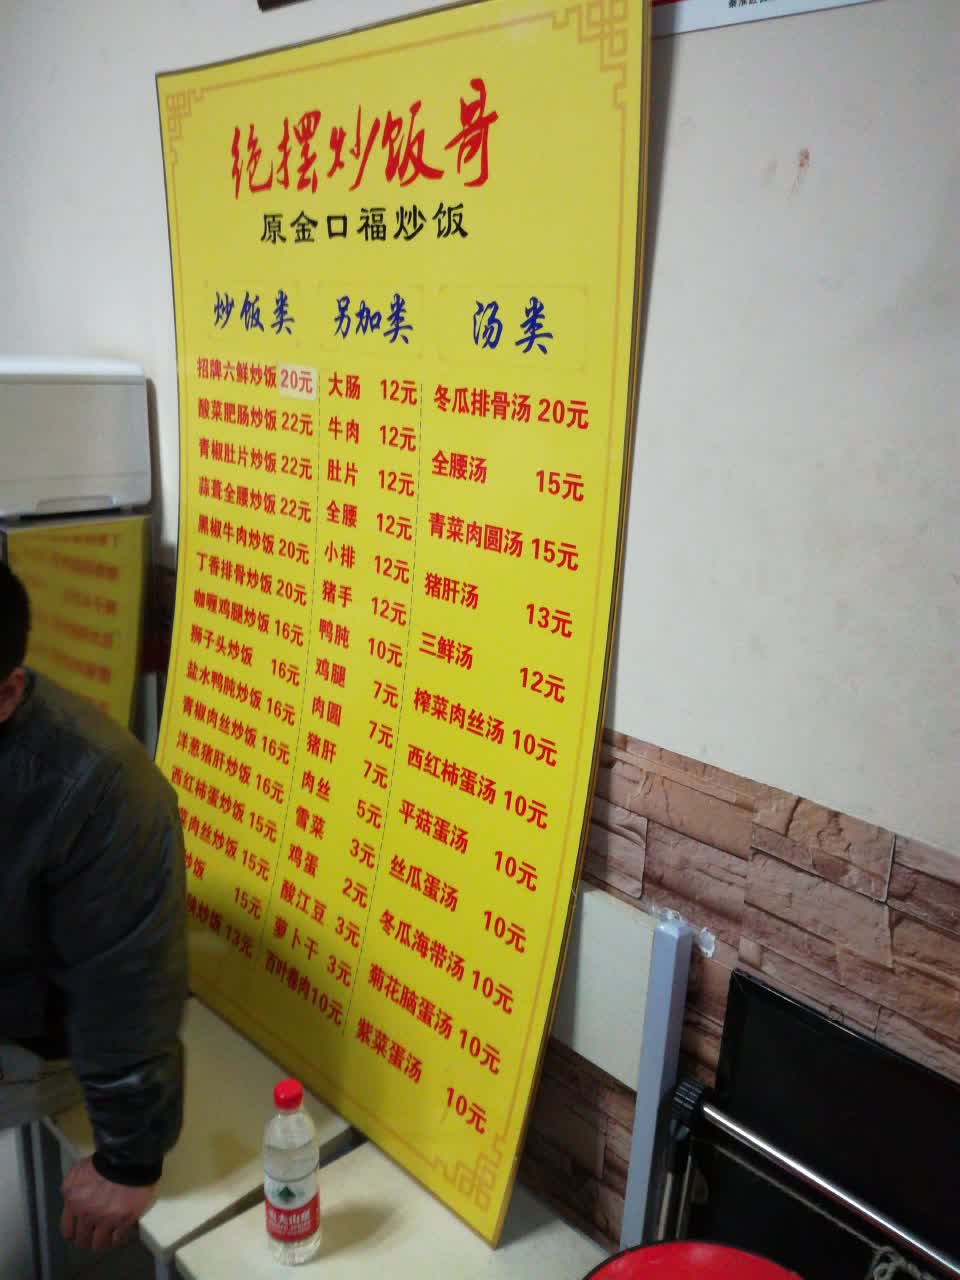 绝摆炒饭哥
原金口福炒饭
炒饭类
招牌六鲜炒饭 20元
酸菜肥肠炒饭 22元
青椒肚片炒饭 22元
蒜薹全腰炒饭 22元
黑椒牛肉炒饭 20元
丁香排骨炒饭 20元
咖喱鸡腿炒饭 16元
狮子头炒饭 16元
盐水鸭肫炒饭 16元
青椒肉丝炒饭 16元
洋葱猪肝炒饭 16元
西红柿蛋炒饭 15元
肉丝炒饭 15元
炒饭 15元
炒饭 13元
另加类
大肠 12元
牛肉 12元
肚片 12元
全腰 12元
小排 12元
猪手 12元
鸭肫 10元
鸡腿 7元
肉圆 7元
猪肝 7元
肉丝 5元
雪菜 3元
鸡蛋 2元
酸江豆 3元
萝卜干 3元
百叶卷肉 10元
汤类
冬瓜排骨汤 20元
全腰汤 15元
青菜肉圆汤 15元
猪肝汤 13元
三鲜汤 12元
榨菜肉丝汤 10元
西红柿蛋汤 10元
平菇蛋汤 10元
丝瓜蛋汤 10元
冬瓜海带汤 10元
菊花脑蛋汤 10元
紫菜蛋汤 10元